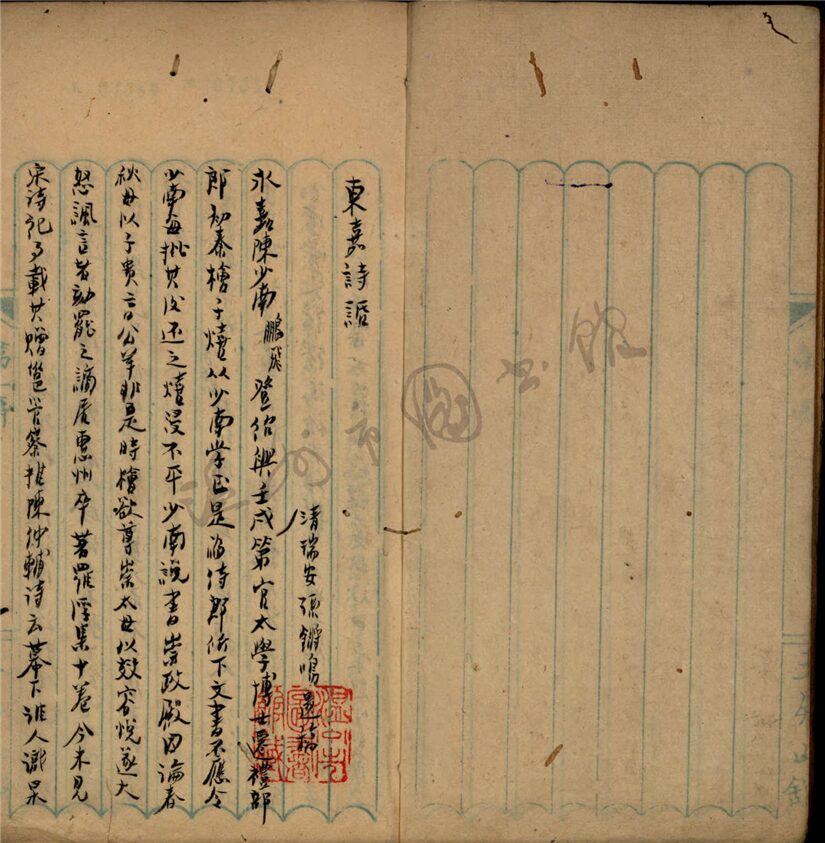 東嘉詩話
清瑞安孫鏘鳴遺稿
永嘉陳少南鵬飛登紹興壬戌第官太學博士遷禮部
郎初秦檜子熺從少南學正是為侍郎行下文書不應令
少南每批其後還之熺浸不平少南說書崇政殿因論春
秋母以子貴言公羊非是時檜欲尊崇太母以效容悅遂大
怒諷言者劾罷之謫居惠州卒著羅浮集十卷今未見
宋詩紀事載其贈邕管蔡推陳仲輔詩云幕下誰人識杲
溫州市圖書館